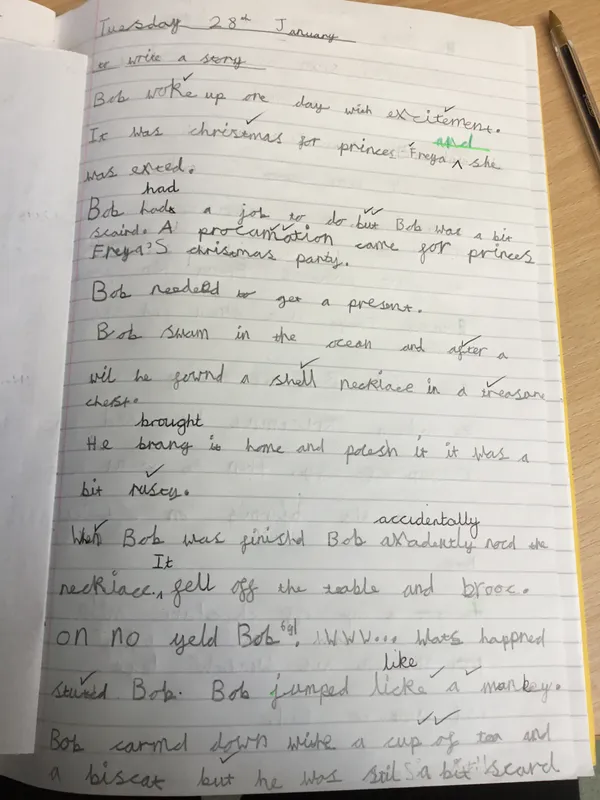 Tuesday 28th January
to write a story
Bob woke up one day with excitement.
It was christmas for princes Freya ^ and she
was exted.
had
Bob hads a job to do but Bob was a bit
scaird. A procamation came for princes
Freya'S christmas party.
Bob needed to get a present.
Bob swam in the ocean and after a
wil he fownd a shell necklace in a treasure
chest.
brought
He brang it home and polesh it it was a
bit rusty.
accidentally
When Bob was finishd Bob axadently nocd the
It
necklace. ^ fell off the teable and brooc.
on no yeld Bob. WWW... Wats happned
like
Bob. Bob jumped licke a monkey.
Bob carmd down withe a cup of tea and
a biscat but he was stil a bit scard